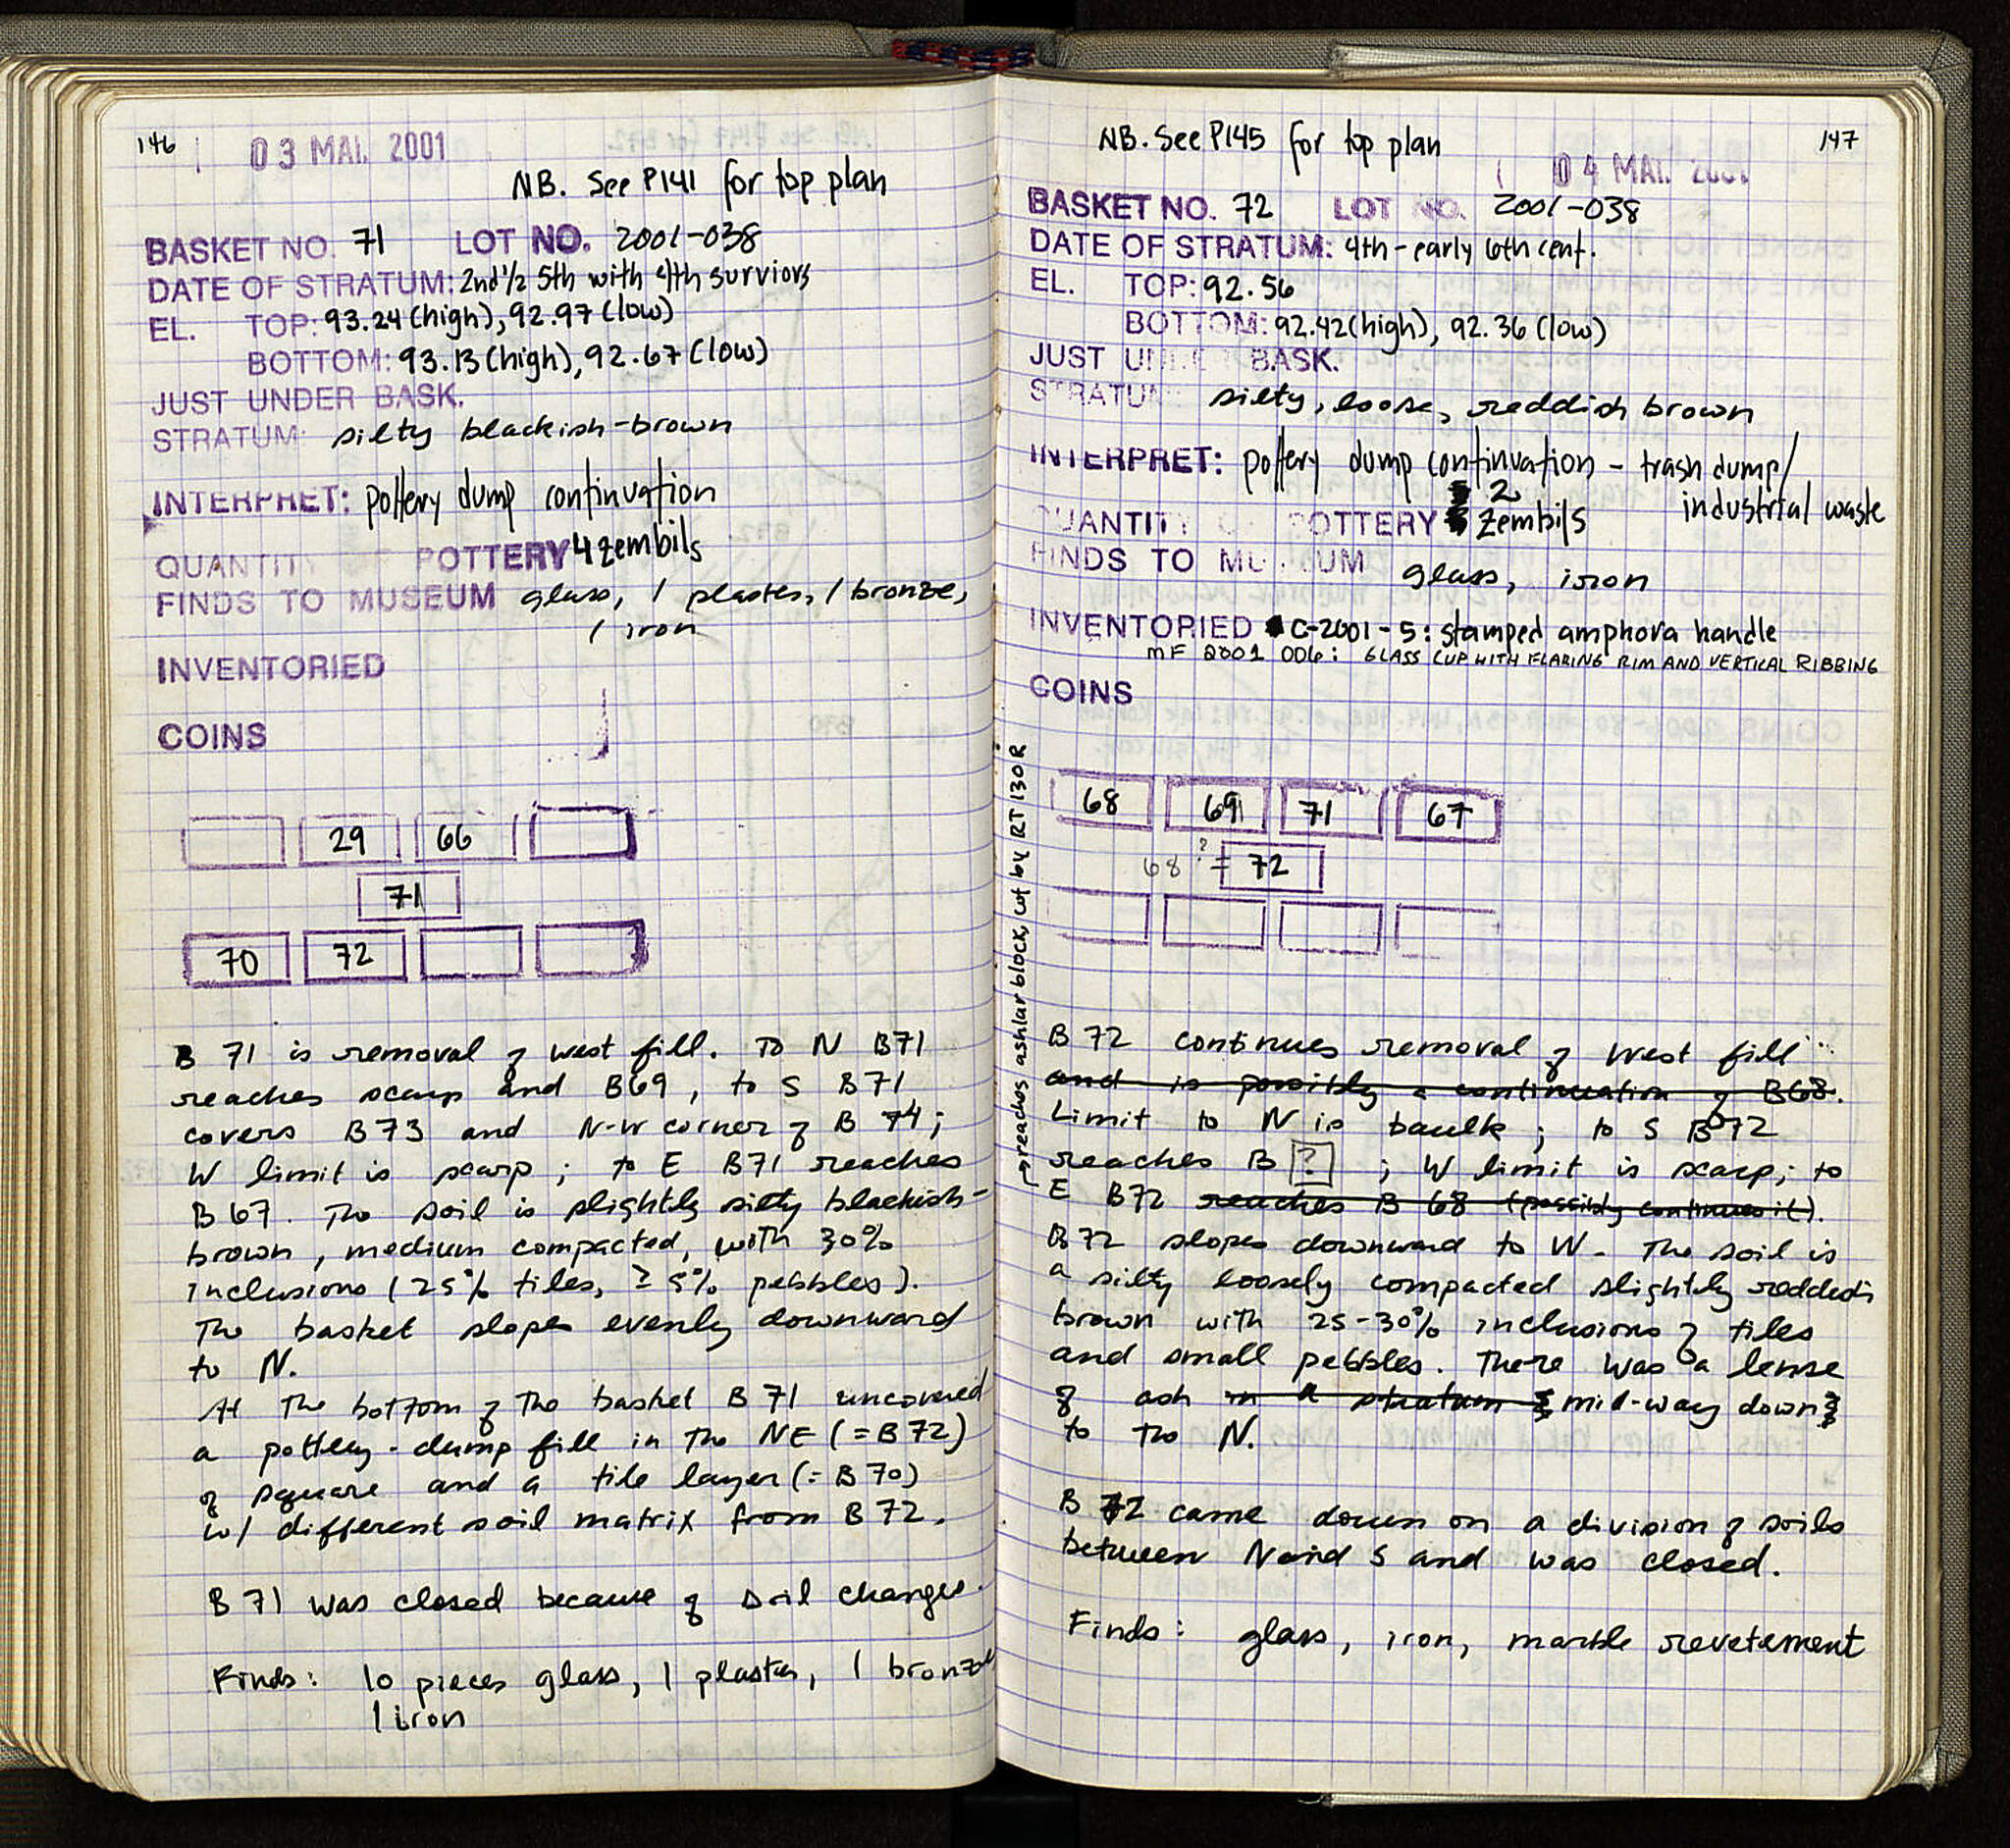 146
03 MAI. 2001
NB. See P141 for top plan
BASKET NO. 71 LOT NO. 2001-038
DATE OF STRATUM: 2nd ½ 5th with 4th surviors
EL. TOP: 93.24 (high), 92.97 (low)
BOTTOM: 93.13 (high), 92.67 (low)
JUST UNDER BASK.
STRATUM: silty blackish-brown
INTERPRET: pottery dump continuation
QUANTITY OF POTTERY 4 zembils
FINDS TO MUSEUM glass, 1 plaster, 1 bronze,
1 iron
INVENTORIED
COINS
29 66
71
70 72
B 71 is removal of west fill. To N B71
reaches scarp and B69, to S B71
covers B73 and N-W corner of B 74;
W limit is scarp; to E B71 reaches
B67. The soil is slightly silty blackish-
brown, medium compacted, with 30%
inclusions (25% tiles, ≥ 5% pebbles).
The basket slopes evenly downward
to N.
At the bottom of the basket B 71 uncovered
a pottery-dump fill in the NE (= B72)
of square and a tile layer (= B70)
w/ different soil matrix from B 72.
B 71 was closed because of soil change.
Finds: 10 pieces glass, 1 plaster, 1 bronze
1 iron
NB. See P145 for top plan
147
04 MAI. 2001
BASKET NO. 72 LOT NO. 2001-038
DATE OF STRATUM: 4th - early 6th cent.
EL. TOP: 92.56
BOTTOM: 92.42 (high), 92.36 (low)
JUST UNDER BASK.
STRATUM: silty, loose, reddish brown
INTERPRET: pottery dump continuation - trash dump/
industrial waste
QUANTITY OF POTTERY 2 zembils
FINDS TO MUSEUM glass, iron
INVENTORIED C-2001-5: stamped amphora handle
MF 2001 006: GLASS CUP WITH FLARING RIM AND VERTICAL RIBBING
COINS
68 69 71 67
68 ?= 72
→ reaches ashlar block, cut by RT 130R
B 72 continues removal of West fill
and is possibly a continuation of B68.
Limit to N is baulk; to S B72
reaches B ?; W limit is scarp; to
E B72 reaches B 68 (possibly continues it).
B72 slopes downward to W. The soil is
a silty loosely compacted slightly reddish
brown with 25-30% inclusions of tiles
and small pebbles. There was a lense
of ash in a stratum mid-way down
to the N.
B 72 came down on a division of soils
between N and S and was closed.
Finds: glass, iron, marble revetement